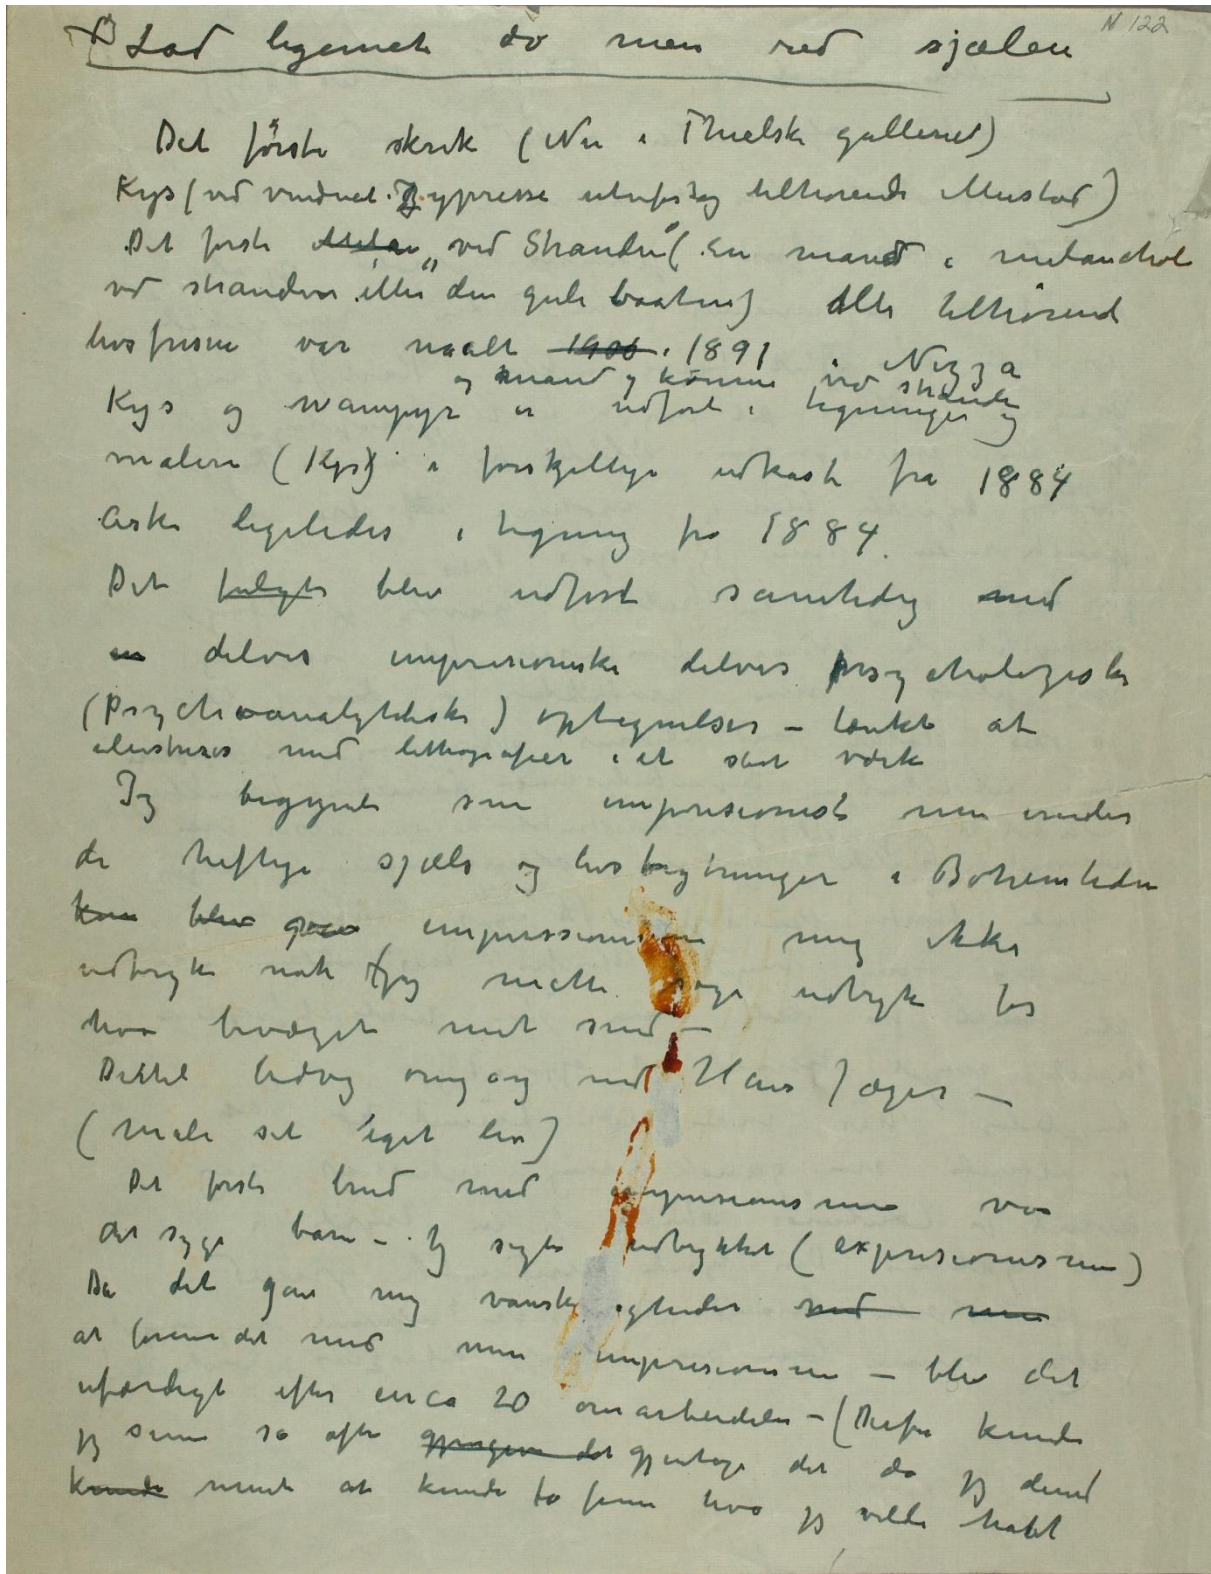 N 122
Lad legemet dø men red sjælen
Det første skrik (Nu i Thielske galleriet)
Kys (ved vinduet. Cypresse udenfor og tilhørende Mustad)
Det første Melan „ved Stranden“ (En mand i melancholi
ved stranden eller den gule baaten) Alle tilhørend
livsfrisen var malt 1906 i 1891 i Nizza
og mand og kvinne ved stranden
Kys og Wampyr er udført i tegninger og
maleri (Kys) i forskjellige udkast fra 1884
Aske ligeledes i tegning fra 1884.
Det fulgte blev udført samtidig med
en delvis impresioniske delvis psychologiske
(Psychoanalytetiske) optegnelser – tænkt at
ilustreres med lithografier i et stort værk
Jeg begynte som impresionist men under
de heftige sjæls og livsbrytninger i Bohemtiden
kom blev gav impressionismen mig ikke
udtryk nok – jeg måtte søge udtryk for
hva bevæget mit sind –
Dertil bidrog omgang med Hans Jæger –
(male sit eget liv)
Det første brud med impresionismen var
det syge barn – Jeg søgte udtrykket (Expresionismen)
Da det gav mig vanskeligheder med min
at forene det med min impresionisme – blev det
ufærdigt efter circa 20 omarbeidelser – (Derfor kunde
jeg senere så ofte det gjentage det da jeg derved
kunde mente at kunde få frem hva jeg vilde havt